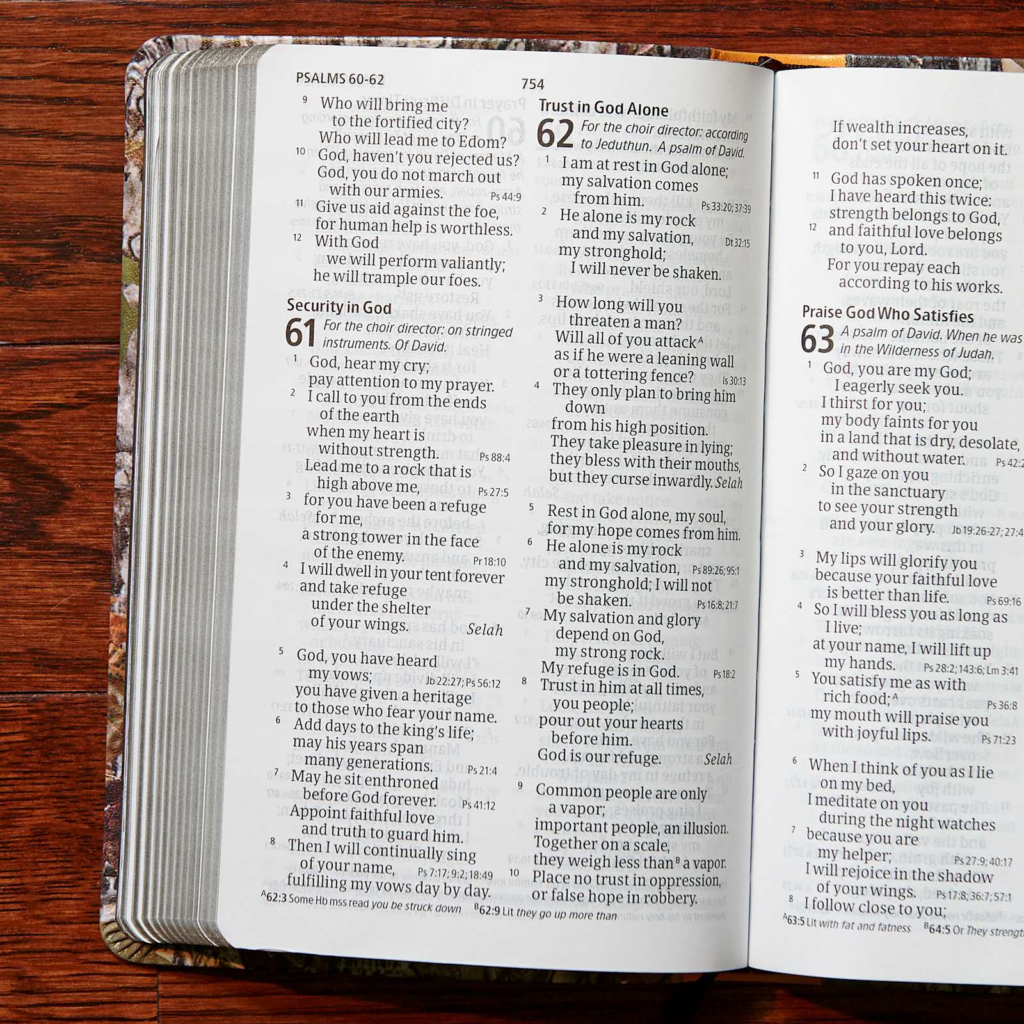 PSALMS 60-62
754
9 Who will bring me
to the fortified city?
Who will lead me to Edom?
10 God, haven't you rejected us?
God, you do not march out
with our armies. Ps 44:9
11 Give us aid against the foe,
for human help is worthless.
12 With God
we will perform valiantly;
he will trample our foes.
Security in God
61 For the choir director: on stringed
instruments. Of David.
1 God, hear my cry;
pay attention to my prayer.
2 I call to you from the ends
of the earth
when my heart is
without strength. Ps 88:4
Lead me to a rock that is
high above me, Ps 27:5
3 for you have been a refuge
for me,
a strong tower in the face
of the enemy. Pr 18:10
4 I will dwell in your tent forever
and take refuge
under the shelter
of your wings. Selah
5 God, you have heard
my vows; Jb 22:27; Ps 56:12
you have given a heritage
to those who fear your name.
6 Add days to the king's life;
may his years span
many generations. Ps 21:4
7 May he sit enthroned
before God forever. Ps 41:12
Appoint faithful love
and truth to guard him.
8 Then I will continually sing
of your name, Ps 7:17; 9:2; 18:49
fulfilling my vows day by day.
Trust in God Alone
62 For the choir director: according
to Jeduthun. A psalm of David.
1 I am at rest in God alone;
my salvation comes
from him. Ps 33:20; 37:39
2 He alone is my rock
and my salvation, Dt 32:15
my stronghold;
I will never be shaken.
3 How long will you
threaten a man?
Will all of you attackA
as if he were a leaning wall
or a tottering fence? Is 30:13
4 They only plan to bring him
down
from his high position.
They take pleasure in lying;
they bless with their mouths,
but they curse inwardly. Selah
5 Rest in God alone, my soul,
for my hope comes from him.
6 He alone is my rock
and my salvation, Ps 89:26; 95:1
my stronghold; I will not
be shaken. Ps 16:8; 21:7
7 My salvation and glory
depend on God,
my strong rock.
My refuge is in God. Ps 18:2
8 Trust in him at all times,
you people;
pour out your hearts
before him.
God is our refuge. Selah
9 Common people are only
a vapor;
important people, an illusion.
Together on a scale,
they weigh less thanB a vapor.
10 Place no trust in oppression,
or false hope in robbery.
A62:3 Some Hb mss read you be struck down B62:9 Lit they go up more than
If wealth increases,
don't set your heart on it.
11 God has spoken once;
I have heard this twice:
strength belongs to God,
12 and faithful love belongs
to you, Lord.
For you repay each
according to his works.
Praise God Who Satisfies
63 A psalm of David. When he was
in the Wilderness of Judah.
1 God, you are my God;
I eagerly seek you.
I thirst for you;
my body faints for you
in a land that is dry, desolate,
and without water. Ps 42:2
2 So I gaze on you
in the sanctuary
to see your strength
and your glory. Jb 19:26-27; 27:4
3 My lips will glorify you
because your faithful love
is better than life. Ps 69:16
4 So I will bless you as long as
I live;
at your name, I will lift up
my hands. Ps 28:2; 143:6; Lm 3:41
5 You satisfy me as with
rich food;A Ps 36:8
my mouth will praise you
with joyful lips. Ps 71:23
6 When I think of you as I lie
on my bed,
I meditate on you
during the night watches
7 because you are
my helper; Ps 27:9; 40:17
I will rejoice in the shadow
of your wings. Ps 17:8; 36:7; 57:1
8 I follow close to you;
A63:5 Lit with fat and fatness B64:5 Or They strength